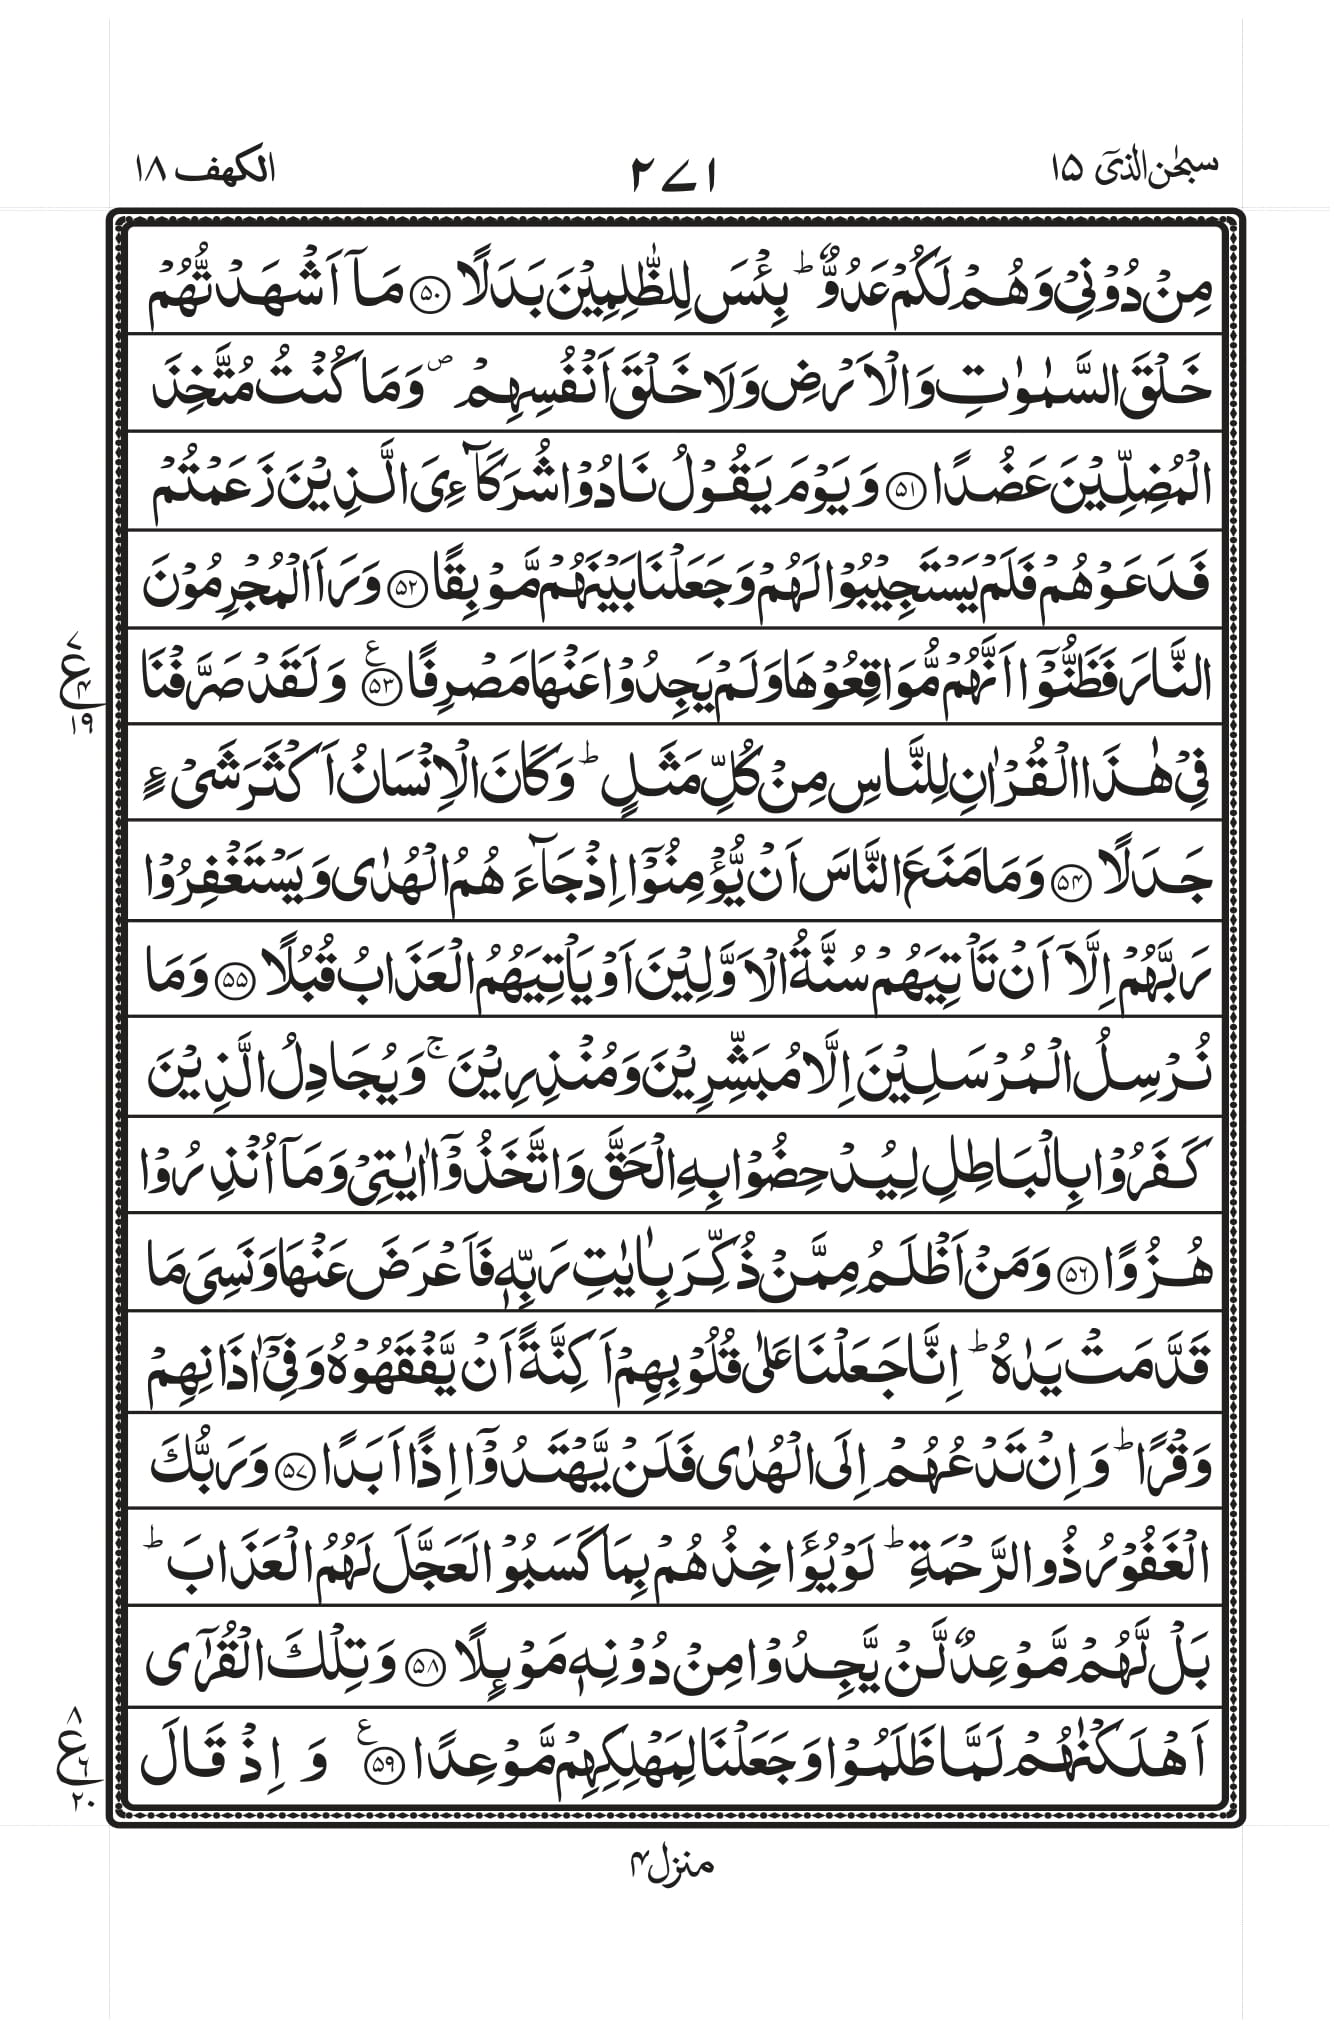 سبحٰن الذیٓ ۱۵
۲۷۱
الکھف ۱۸
مِنْ دُوْنِیْ وَهُمْ لَكُمْ عَدُوٌّ ؕ بِئْسَ لِلظّٰلِمِیْنَ بَدَلًا ﴿۵۰﴾ مَاۤ اَشْهَدْتُّهُمْ
خَلْقَ السَّمٰوٰتِ وَالْاَرْضِ وَلَا خَلْقَ اَنْفُسِهِمْ ۪ وَمَا كُنْتُ مُتَّخِذَ
الْمُضِلِّیْنَ عَضُدًا ﴿۵۱﴾ وَیَوْمَ یَقُوْلُ نَادُوْا شُرَكَآءِیَ الَّذِیْنَ زَعَمْتُمْ
فَدَعَوْهُمْ فَلَمْ یَسْتَجِیْبُوْا لَهُمْ وَجَعَلْنَا بَیْنَهُمْ مَّوْبِقًا ﴿۵۲﴾ وَرَاَ الْمُجْرِمُوْنَ
النَّارَ فَظَنُّوْۤا اَنَّهُمْ مُّوَاقِعُوْهَا وَلَمْ یَجِدُوْا عَنْهَا مَصْرِفًا ﴿۵۳﴾ ع وَلَقَدْ صَرَّفْنَا
۷ ع ۴ ۱۹
فِیْ هٰذَا الْقُرْاٰنِ لِلنَّاسِ مِنْ كُلِّ مَثَلٍ ؕ وَكَانَ الْاِنْسَانُ اَكْثَرَ شَیْءٍ
جَدَلًا ﴿۵۴﴾ وَمَا مَنَعَ النَّاسَ اَنْ یُّؤْمِنُوْۤا اِذْ جَآءَهُمُ الْهُدٰی وَیَسْتَغْفِرُوْا
رَبَّهُمْ اِلَّاۤ اَنْ تَاْتِیَهُمْ سُنَّةُ الْاَوَّلِیْنَ اَوْ یَاْتِیَهُمُ الْعَذَابُ قُبُلًا ﴿۵۵﴾ وَمَا
نُرْسِلُ الْمُرْسَلِیْنَ اِلَّا مُبَشِّرِیْنَ وَمُنْذِرِیْنَ ۚ وَیُجَادِلُ الَّذِیْنَ
كَفَرُوْا بِالْبَاطِلِ لِیُدْحِضُوْا بِهِ الْحَقَّ وَاتَّخَذُوْۤا اٰیٰتِیْ وَمَاۤ اُنْذِرُوْا
هُزُوًا ﴿۵۶﴾ وَمَنْ اَظْلَمُ مِمَّنْ ذُكِّرَ بِاٰیٰتِ رَبِّهٖ فَاَعْرَضَ عَنْهَا وَنَسِیَ مَا
قَدَّمَتْ یَدٰهُ ؕ اِنَّا جَعَلْنَا عَلٰی قُلُوْبِهِمْ اَكِنَّةً اَنْ یَّفْقَهُوْهُ وَفِیْۤ اٰذَانِهِمْ
وَقْرًا ؕ وَاِنْ تَدْعُهُمْ اِلَی الْهُدٰی فَلَنْ یَّهْتَدُوْۤا اِذًا اَبَدًا ﴿۵۷﴾ وَرَبُّكَ
الْغَفُوْرُ ذُو الرَّحْمَةِ ؕ لَوْ یُؤَاخِذُهُمْ بِمَا كَسَبُوْا لَعَجَّلَ لَهُمُ الْعَذَابَ ؕ
بَلْ لَّهُمْ مَّوْعِدٌ لَّنْ یَّجِدُوْا مِنْ دُوْنِهٖ مَوْىِٕلًا ﴿۵۸﴾ وَتِلْكَ الْقُرٰۤی
اَهْلَكْنٰهُمْ لَمَّا ظَلَمُوْا وَجَعَلْنَا لِمَهْلِكِهِمْ مَّوْعِدًا ﴿۵۹﴾ ع وَ اِذْ قَالَ
۸ ع ۶ ۲۰
منزل ۴